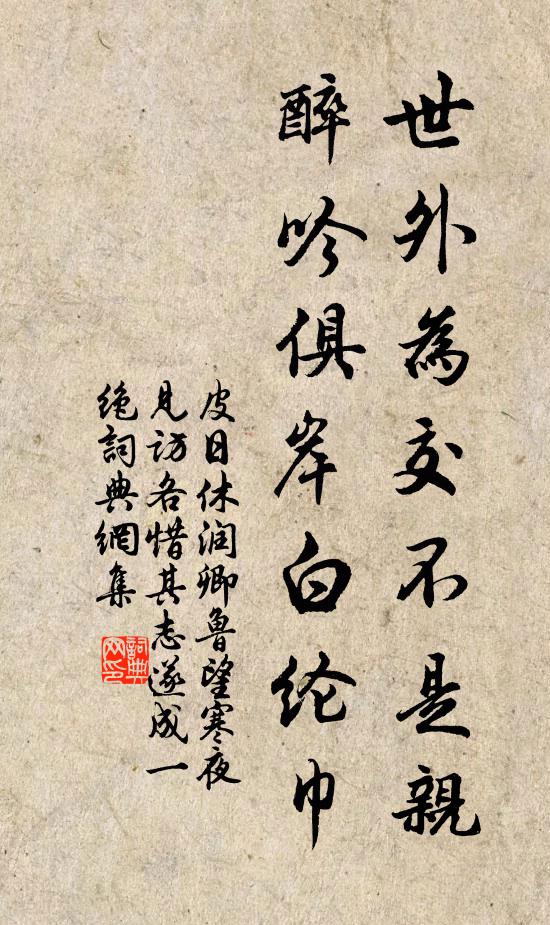 世外為交不是親
醉吟俱岸白纶巾
皮日休润卿鲁望寒夜
见访各惜其志遂成一
绝詞典網集
詞典网印